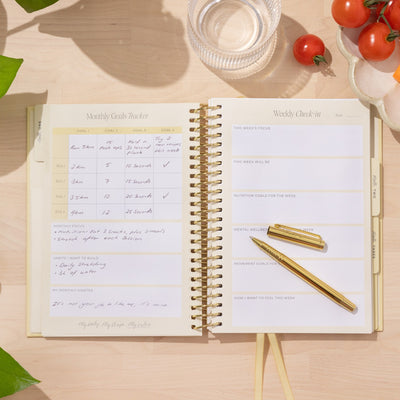 Monthly Goals Tracker
GOAL 1 GOAL 2 GOAL 3 GOAL 4
Run 5km 15 Push ups Hold a 30 second plank Try 2 new recipes this week
2km 5 15 Seconds ✓
3km 7 15 Seconds
3.5km 10 20 Seconds ✓
4km 12 25 Seconds
MONTHLY FOCUS
• Nutrition: Eat 2 snacks, plus 3 meals
• Stretch after each session
HABITS I WANT TO BUILD
• Daily Stretching
• 2L of water
MY MONTHLY MANTRA
It's not your job to like me, it's mine
Weekly Check-in
THIS WEEK'S FOCUS
THIS WEEK WILL BE
NUTRITION GOALS FOR THE WEEK
MENTAL WELLBEING THIS WEEK
MOVEMENT GOALS
HOW I WANT TO FEEL THIS WEEK